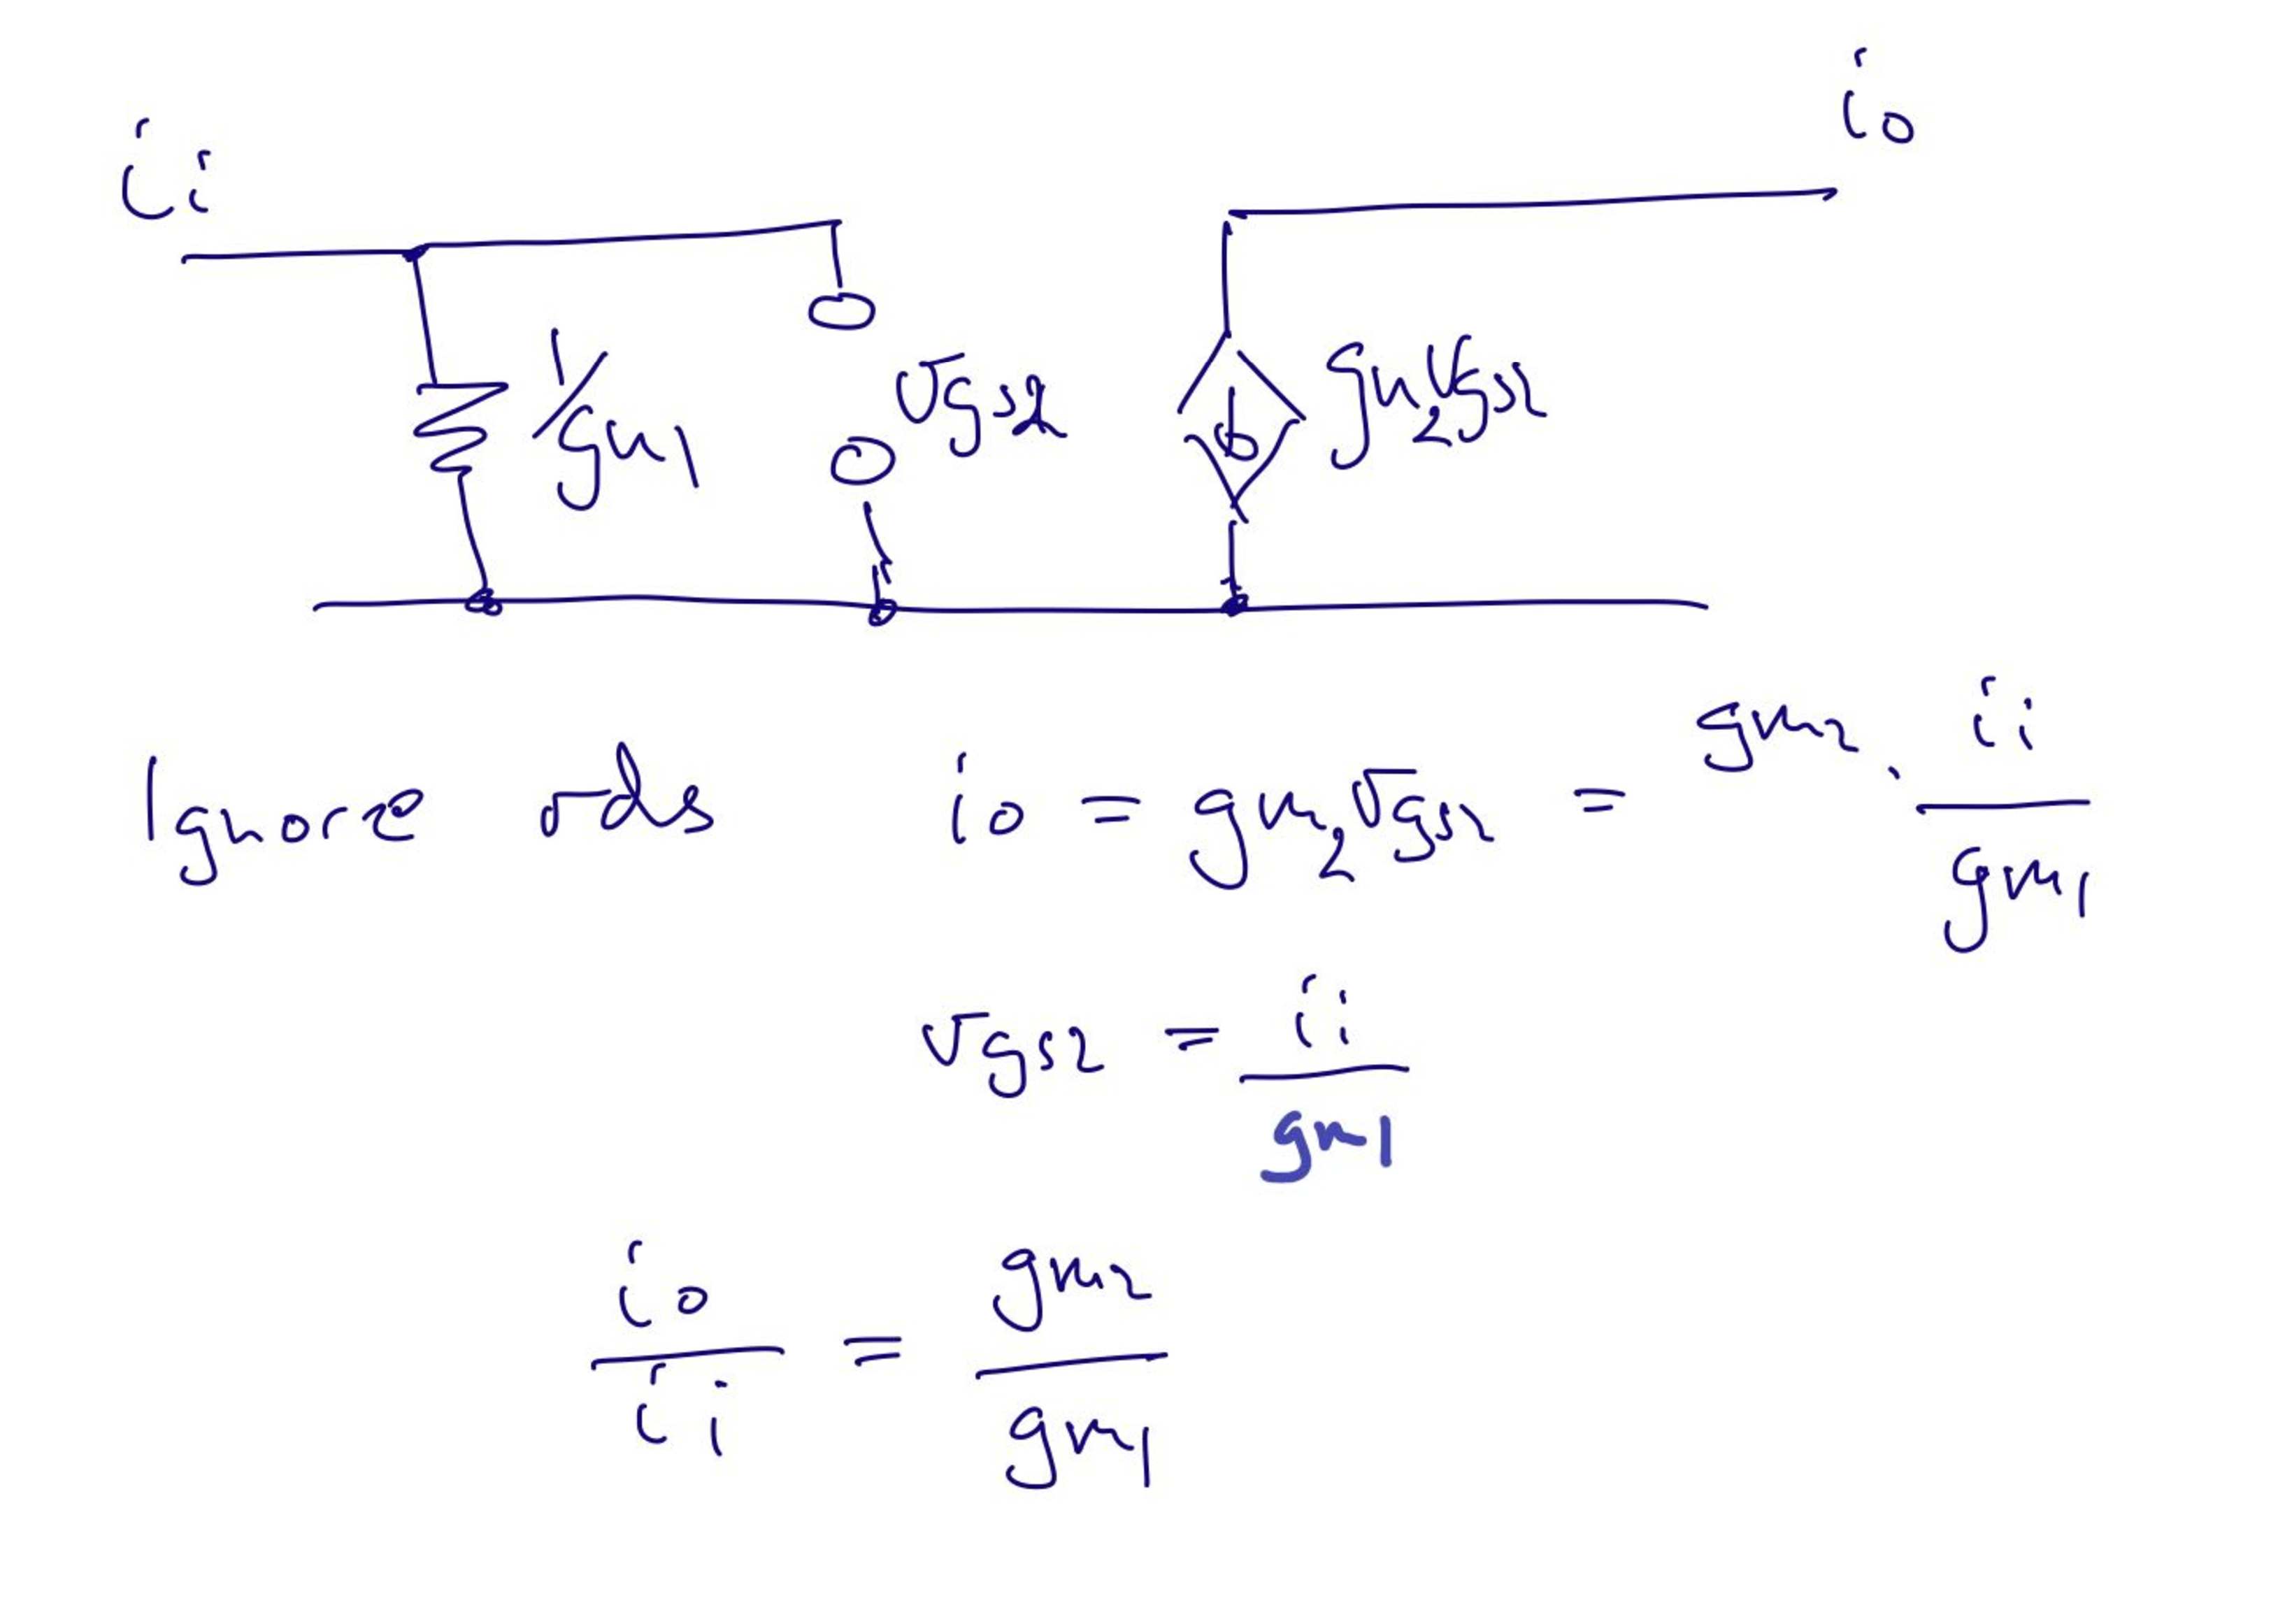 i_i
i_o
1/gm1
vgs2
gm2 vgs2
Ignore rds    i_o = gm2 vgs2 = gm2 . i_i / gm1
vgs2 = i_i / gm1
i_o / i_i = gm2 / gm1